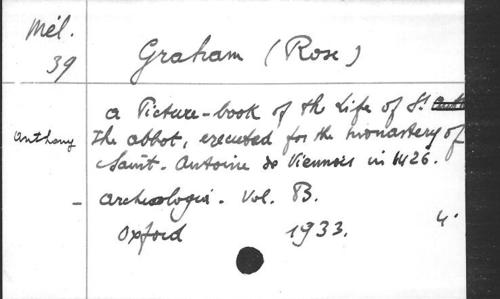 Mél.
39
Graham (Rose)
a Picture-book of the Life of St
Anthony the abbot, executed for the monastery of
Saint-Antoine de Viennois in 1426.
- Archæologia. Vol. 83.
Oxford 1933. 4°